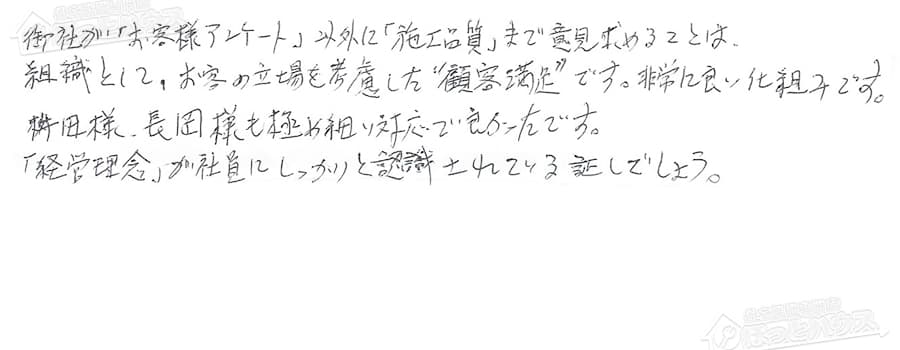 御社が「お客様アンケート」以外に「施工品質」まで意見求めることは、
組織として、お客の立場を考慮した“顧客満足”です。非常に良い仕組みです。
桝田様、長岡様も極め細い対応で良かったです。
「経営理念」が社員にしっかりと認識されている証しでしょう。